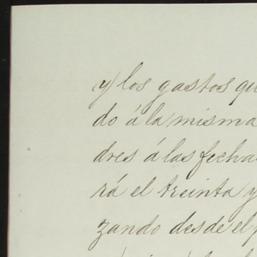 y los gastos qu
do á la misma
dres á las fecha
rá el treinta y
zando desde el p